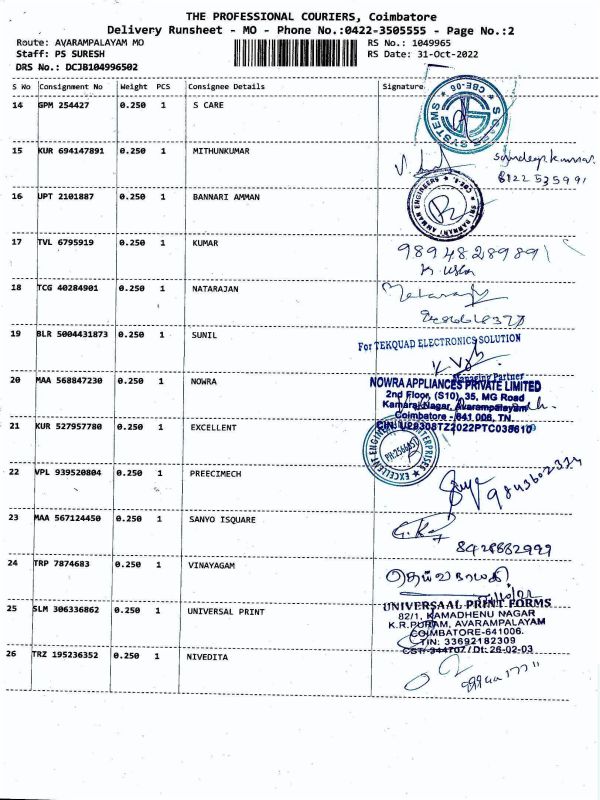 THE PROFESSIONAL COURIERS, Coimbatore
Delivery Runsheet - MO - Phone No.:0422-3505555 - Page No.:2
Route: AVARAMPALAYAM MO RS No.: 1049965
Staff: PS SURESH RS Date: 31-Oct-2022
DRS No.: DCJB104996502
S No Consignment No Weight PCS Consignee Details Signature
14 GPM 254427 0.250 1 S CARE
CBE-06
SYSTEMS
15 KUR 694147891 0.250 1 MITHUNKUMAR
8122 535991
16 UPT 2101887 0.250 1 BANNARI AMMAN
SRI BANNARI AMMAN ENGINEERS
17 TVL 6795919 0.250 1 KUMAR
9894828989
18 TCG 40284901 0.250 1 NATARAJAN
19 BLR 5004431873 0.250 1 SUNIL
For TEKQUAD ELECTRONICS SOLUTION
Managing Partner
20 MAA 568847230 0.250 1 NOWRA
NOWRA APPLIANCES PRIVATE LIMITED
2nd Floor, (S10), 35, MG Road
Kamaraj Nagar, Avarampalayam
Coimbatore - 641 006, TN.
21 KUR 527957780 0.250 1 EXCELLENT
EXCELLENT ENGINEERING ENTERPRISES
22 VPL 939520804 0.250 1 PREECIMECH
9843602334
23 MAA 567124450 0.250 1 SANYO ISQUARE
8428882999
24 TRP 7874683 0.250 1 VINAYAGAM
25 SLM 306336862 0.250 1 UNIVERSAL PRINT
UNIVERSAAL PRINT FORMS
82/1, KAMADHENU NAGAR
K.R.PURAM, AVARAMPALAYAM
COIMBATORE-641006.
TIN: 33692182309
CST/ 344707 / Dt: 26-02-03
26 TRZ 195236352 0.250 1 NIVEDITA